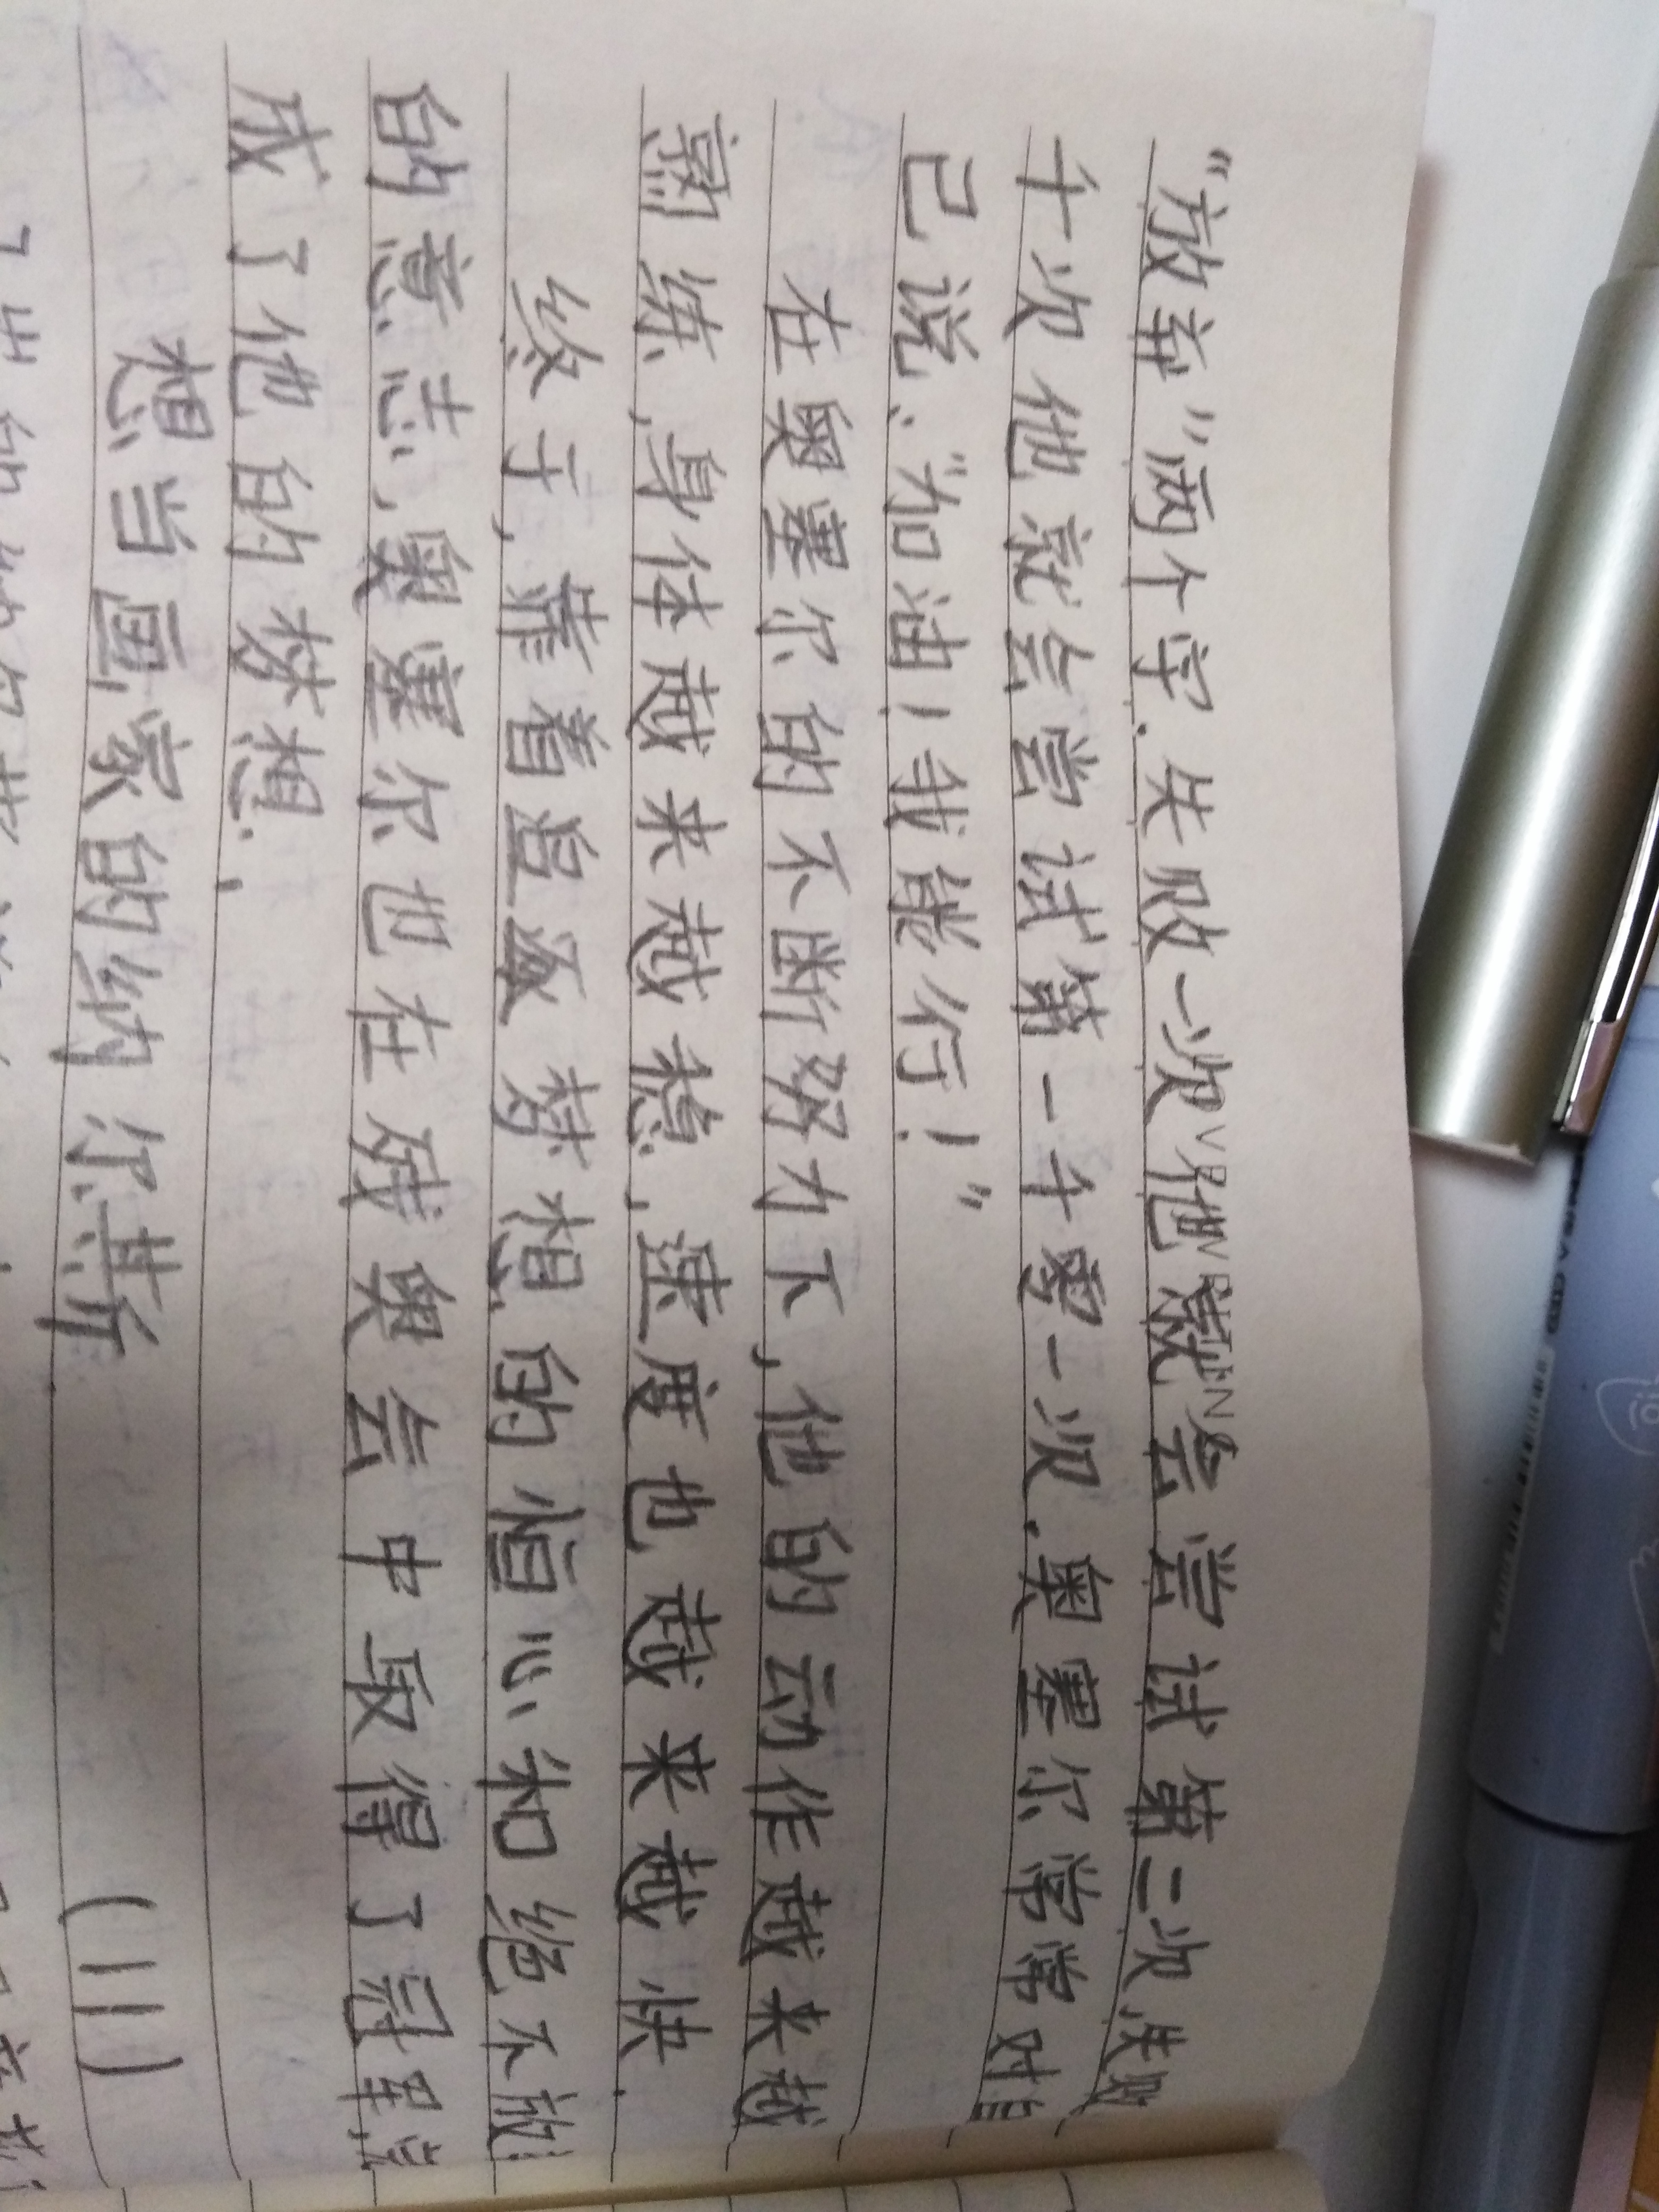 “放弃”两个字.失败一次他就会尝试第二次,失败
十次他就会尝试第一十零一次.奥塞尔常常对自
己说:“加油!我能行!”
在奥塞尔的不断努力下,他的动作越来越
熟练,身体越来越棒,速度也越来越快.
终于,靠着追逐梦想的恒心和绝不放
的意志,奥塞尔也在残奥会中取得了冠军,
成了他的梦想.
想当画家的纳尔斯 (111)